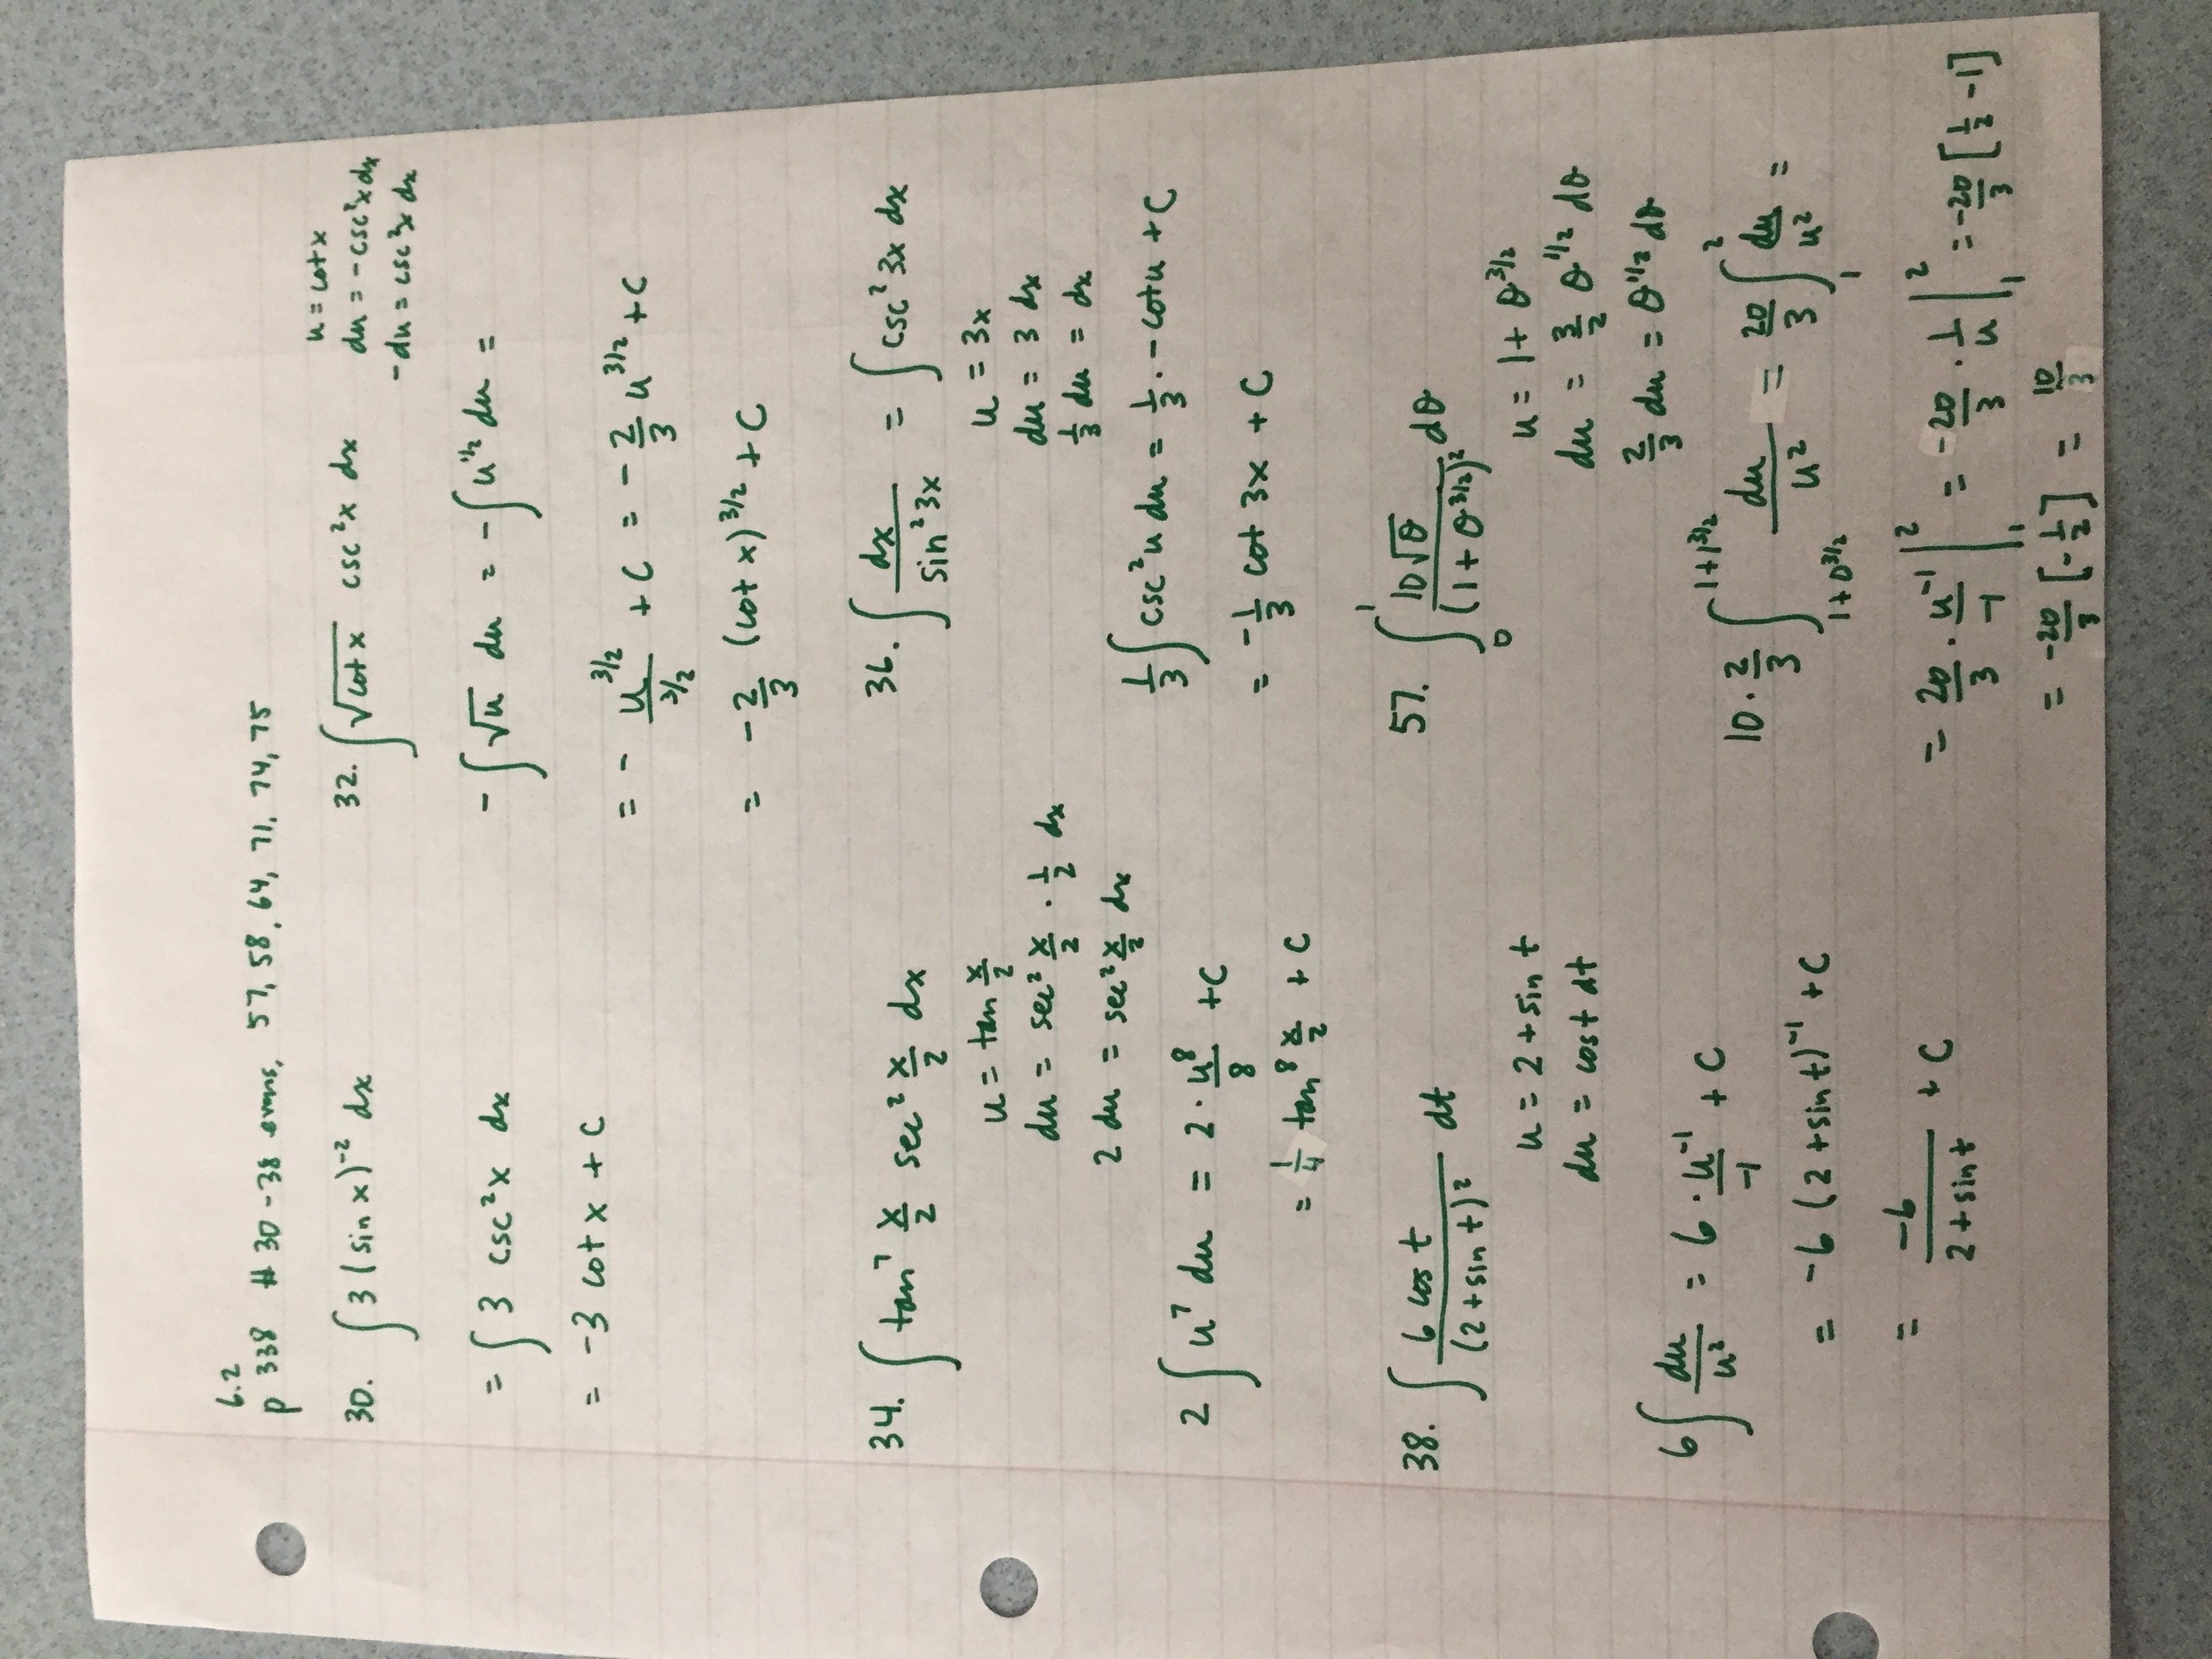 6.2
p 338 # 30-38 evens, 57, 58, 64, 71, 74, 75
30. ∫ 3 (sin x)⁻² dx
= ∫ 3 csc²x dx
= -3 cot x + C
32. ∫ √(cot x) csc²x dx
u = cot x
du = -csc²x dx
-du = csc²x dx
-∫ √u du = -∫ u^(1/2) du =
= - u^(3/2)/(3/2) + C = -2/3 u^(3/2) + C
= -2/3 (cot x)^(3/2) + C
34. ∫ tan⁷ x/2 sec² x/2 dx
u = tan x/2
du = sec² x/2 · 1/2 dx
2 du = sec² x/2 dx
2 ∫ u⁷ du = 2 · u⁸/8 + C
= 1/4 tan⁸ x/2 + C
36. ∫ dx/(sin² 3x) = ∫ csc² 3x dx
u = 3x
du = 3 dx
1/3 du = dx
1/3 ∫ csc²u du = 1/3 · -cot u + C
= -1/3 cot 3x + C
38. ∫ 6 cos t/(2 + sin t)² dt
u = 2 + sin t
du = cos t dt
6 ∫ du/u² = 6 · u⁻¹/-1 + C
= -6 (2 + sin t)⁻¹ + C
= -6/(2 + sin t) + C
57. ∫₀¹ 10√θ/(1 + θ^(3/2))² dθ
u = 1 + θ^(3/2)
du = 3/2 θ^(1/2) dθ
2/3 du = θ^(1/2) dθ
10 · 2/3 ∫_(1+0^(3/2))^(1+1^(3/2)) du/u² = 20/3 ∫₁² du/u² =
= 20/3 · u⁻¹/-1 |₁² = -20/3 · 1/u |₁² = -20/3 [1/2 - 1]
= -20/3 [-1/2] = 10/3